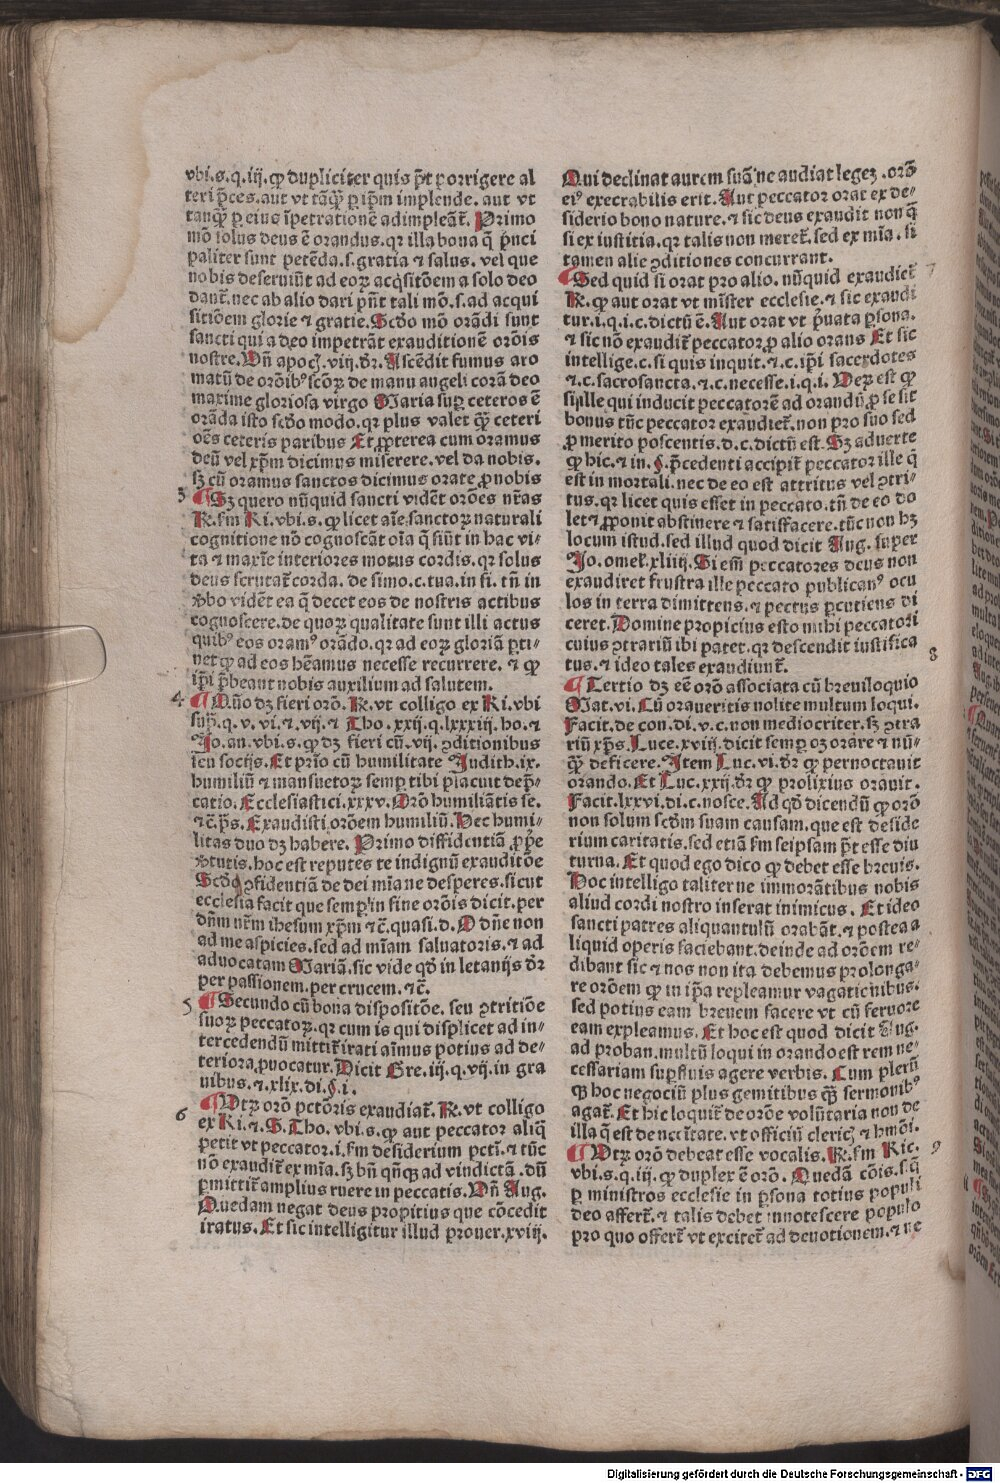 vbi.s.q.iij. ꝙ dupliciter quis p̄t porrigere al
teri p̄ces. aut vt tāꝙ̄ ꝑ ip̄m implende. aut vt
tanꝙ̄ ꝑ eius īpetrationē adimpleāt̄. Primo
mō solus deus ē orandus. qꝛ illa bona q̄ p̄nci
paliter sunt petēda. s. gratia ⁊ salus. vel que
nobis deseruiūt ad eoꝝ acq̇sitōem a solo deo
dant̄. nec ab alio dari pn̄t tali mō. s. ad acqui
sitiōem glorie ⁊ gratie. Scd̄o mō orādi sunt
sancti qui a deo impetrāt exauditionē orōis
nostre. Vn̄ apocꝭ. viij. dr̄. Ascēdit fumus aro
matū de orōibꝰ scōꝝ de manu angeli corā deo
maxime gloriosa virgo Maria suꝑ ceteros ē
orāda isto scd̄o modo. qꝛ plus valet ꝙ̄ ceteri
oēs ceteris paribus Et ꝓpterea cum oramus
deū vel xp̄m dicimus miserere. vel da nobis.
sꝫ cū oramus sanctos dicimus orate ꝓ nobis
3 ¶ Sꝫ quero nūquid sancti vidēt orōes nr̄as
R̄. fm Ri. vbi. s. ꝙ licet aīe sanctoꝝ naturali
cognitione nō cognoscāt oīa q̄ fiūt in hac vi-
ta ⁊ maxīe interiores motus cordis. qꝛ solus
deus scrutat̄ corda. de simo. c. tua. in fi. tn̄ in
ꝟbo vidēt ea q̄ decet eos de nostris actibus
cognoscere. de quoꝝ qualitate sunt illi actus
quibꝰ eos oramꝰ orādo. qꝛ ad eoꝝ gloriā ꝑti-
net ꝙ ad eos hēamus necesse recurrere. ⁊ ꝙ
ip̄i p̄beant nobis auxilium ad salutem.
4 ¶ Quō dꝫ fieri orō. R̄. vt colligo ex Ri. vbi
sup̄. q. v. vi. ⁊ vij. ⁊ Tho. xxij. q. lxxxiij. ho. ⁊
Jo. an. vbi. s. ꝙ dꝫ fieri cū. vij. ꝯditionibus
seu socijs. Et prīo cū humilitate Judith. ix.
humiliū ⁊ mansuetoꝝ semꝑ tibi placuit dep̄-
catio. Ecclesiastici. xxxv. Orō humiliātis se.
⁊ c̄. ps̄. Exaudisti orōem humiliū. Hec humi-
litas duo dꝫ habere. Primo diffidentiā ꝓp̄e
ꝟtutis. hoc est reputes te indignū exauditōe
Scd̄o ꝯfidentiā de dei mīa ne desperes. sicut
ecclesia facit que semꝑ in fine orōis dicit. per
dn̄m nr̄m ihesum xp̄m ⁊ c̄. quasi. d. O dn̄e non
ad me aspicies. sed ad mīam saluatoris. ⁊ ad
aduocatam Mariā. sic vide qd̄ in letanijs dr̄
per passionem. per crucem. ⁊ c̄.
5 ¶ Secundo cū bona dispositōe. seu ꝯtritiōe
suoꝝ peccatoꝝ. qꝛ cum is qui displicet ad in-
tercedendū mittit̄ irati aīmus potius ad de-
teriora ꝓuocatur. Dicit Gre. iij. q. vij. in gra
uibus. ⁊. xlix. di. §. i.
6 ¶ Vtꝝ orō pctōris exaudiat̄. R̄. vt colligo
ex Ri. ⁊. S. Tho. vbi. s. ꝙ aut peccator aliq̄
petit vt peccator. i. fm desiderium pctī. ⁊ tūc
nō exaudit̄ ex mīa. sꝫ bn̄ qn̄qꝫ ad vindictā. dū
ꝑmittit̄ amplius ruere in peccatis. Vn̄ Aug.
Quedam negat deus propitius que cōcedit
iratus. Et sic intelligitur illud prouer. xviij.
Qui declinat aurem suā ne audiat legeꝫ. orō
eiꝰ execrabilis erit. Aut peccator orat ex de-
siderio bono nature. ⁊ sic deus exaudit non q̄
si ex iustitia. qꝛ talis non meret̄. sed ex mīa. si
tamen alie ꝯditiones concurrant.
7 ¶ Sed quid si orat pro alio. nūquid exaudiet̄
R̄. ꝙ aut orat vt mīster ecclesie. ⁊ sic exaudi
tur. i. q. i. c. dictū ē. Aut orat vt p̄uata ꝑsona.
⁊ sic nō exaudit̄ peccator ꝓ alio orans Et sic
intellige. c. si quis inquit. ⁊. c. ip̄i sacerdotes
⁊. c. sacrosancta. ⁊. c. necesse. i. q. i. Veꝝ est ꝙ
si ille qui inducit peccatorē ad orandū ꝓ se sit
bonus tūc peccator exaudiet̄. non pro suo sed
ꝓ merito poscentis. d. c. dictū est. Sꝫ aduerte
ꝙ hic. ⁊ in. §. p̄cedenti accipit̄ peccator ille q̄
est in mortali. nec de eo est attritus vel ꝯtri-
tus. qꝛ licet quis esset in peccato. tn̄ de eo do
let ⁊ ꝓponit abstinere ⁊ satisfacere. tūc non hꝫ
locum istud. sed illud quod dicit Aug. super
Jo. omel. xliiij. Si em̄ peccatores deus non
exaudiret frustra ille peccato publicanꝰ ocu
los in terra dimittens. ⁊ pectus ꝑcutiens di
ceret. Domine propicius esto mihi peccatori
cuius ꝯtrariū ibi patet. qꝛ descendit iustifica
tus. ⁊ ideo tales exaudiunt̄.
8 ¶ Tertio dꝫ eē orō associata cū breuiloquio
Mat. vi. Cū oraueritis nolite multum loqui.
Facit. de con. di. v. c. non mediocriter. sꝫ ꝯtra
riū xp̄s. Luce. xviij. dicit semꝑ oꝫ orare ⁊ nū-
ꝙ̄ deficere. Item Luc. vi. dr̄ ꝙ pernoctauit
orando. Et Luc. xxij. dr̄ ꝙ prolixius orauit.
Facit. lxxvi. di. c. nosce. Ad qd̄ dicendū ꝙ orō
non solum scd̄m suam causam. que est deside
rium caritatis. sed etiā fm seipsam p̄t esse diu
turna. Et quod ego dico ꝙ debet esse breuis.
Hoc intelligo taliter ne immorātibus nobis
aliud cordi nostro inserat inimicus. Et ideo
sancti patres aliquantulū orabāt. ⁊ postea a
liquid operis faciebant. deinde ad orōem re-
dibant sic ⁊ nos non ita debemus prolonga-
re orōem ꝙ in ip̄a repleamur vagatiōibus.
sed potius eam breuem facere vt cū feruore
eam expleamus. Et hoc est quod dicit Aug.
ad proban. multū loqui in orando est rem ne-
cessariam suꝑfluis agere verbis. Cum plerū
qꝫ hoc negociū plus gemitibus ꝙ̄ sermonibꝰ
agat̄. Et hic loquit̄ de orōe volūtaria non de
illa q̄ est de nccītate. vt officiū clericꝭ ⁊ hmōi.
9 ¶ Vtꝝ orō debeat esse vocalis. R̄. fm Ric.
vbi. s. q. iij. ꝙ duplex ē orō. Quedā cōis. s. q̄
ꝑ ministros ecclesie in ꝑsona totius populi
deo affert̄. ⁊ talis debet innotescere populo
pro quo offert̄ vt excitet̄ ad deuotionem. ⁊ ne
Digitalisierung gefördert durch die Deutsche Forschungsgemeinschaft - DFG